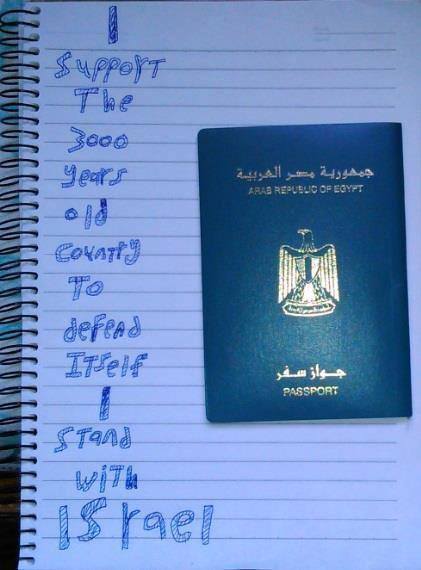 I
Support
The
3000
years
old
Country
To
defend
Itself
I
Stand
with
Israel
جمهورية مصر العربية
ARAB REPUBLIC OF EGYPT
جواز سفر
PASSPORT